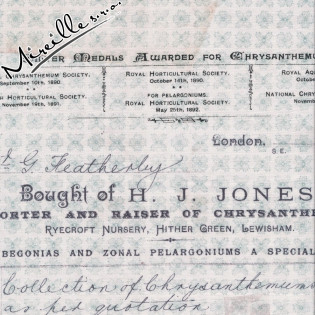 Mireille s.r.o.
ver Medals Awarded for Chrysanthemum
Chrysanthemum Society.
September 10th, 1890.
Royal Horticultural Society.
October 14th, 1890.
Royal Aqu
Octobe
Horticultural Society.
November 19th, 1891.
FOR PELARGONIUMS.
Royal Horticultural Society.
May 25th, 1892.
National Chry
Novem
London,
S.E.
G. Featherby
Bought of H. J. JONES
PORTER AND RAISER OF CHRYSANTHE
Ryecroft Nursery, Hither Green, Lewisham.
BEGONIAS AND ZONAL PELARGONIUMS A SPECIAL
Collection of Chrysanthemums
as per quotation